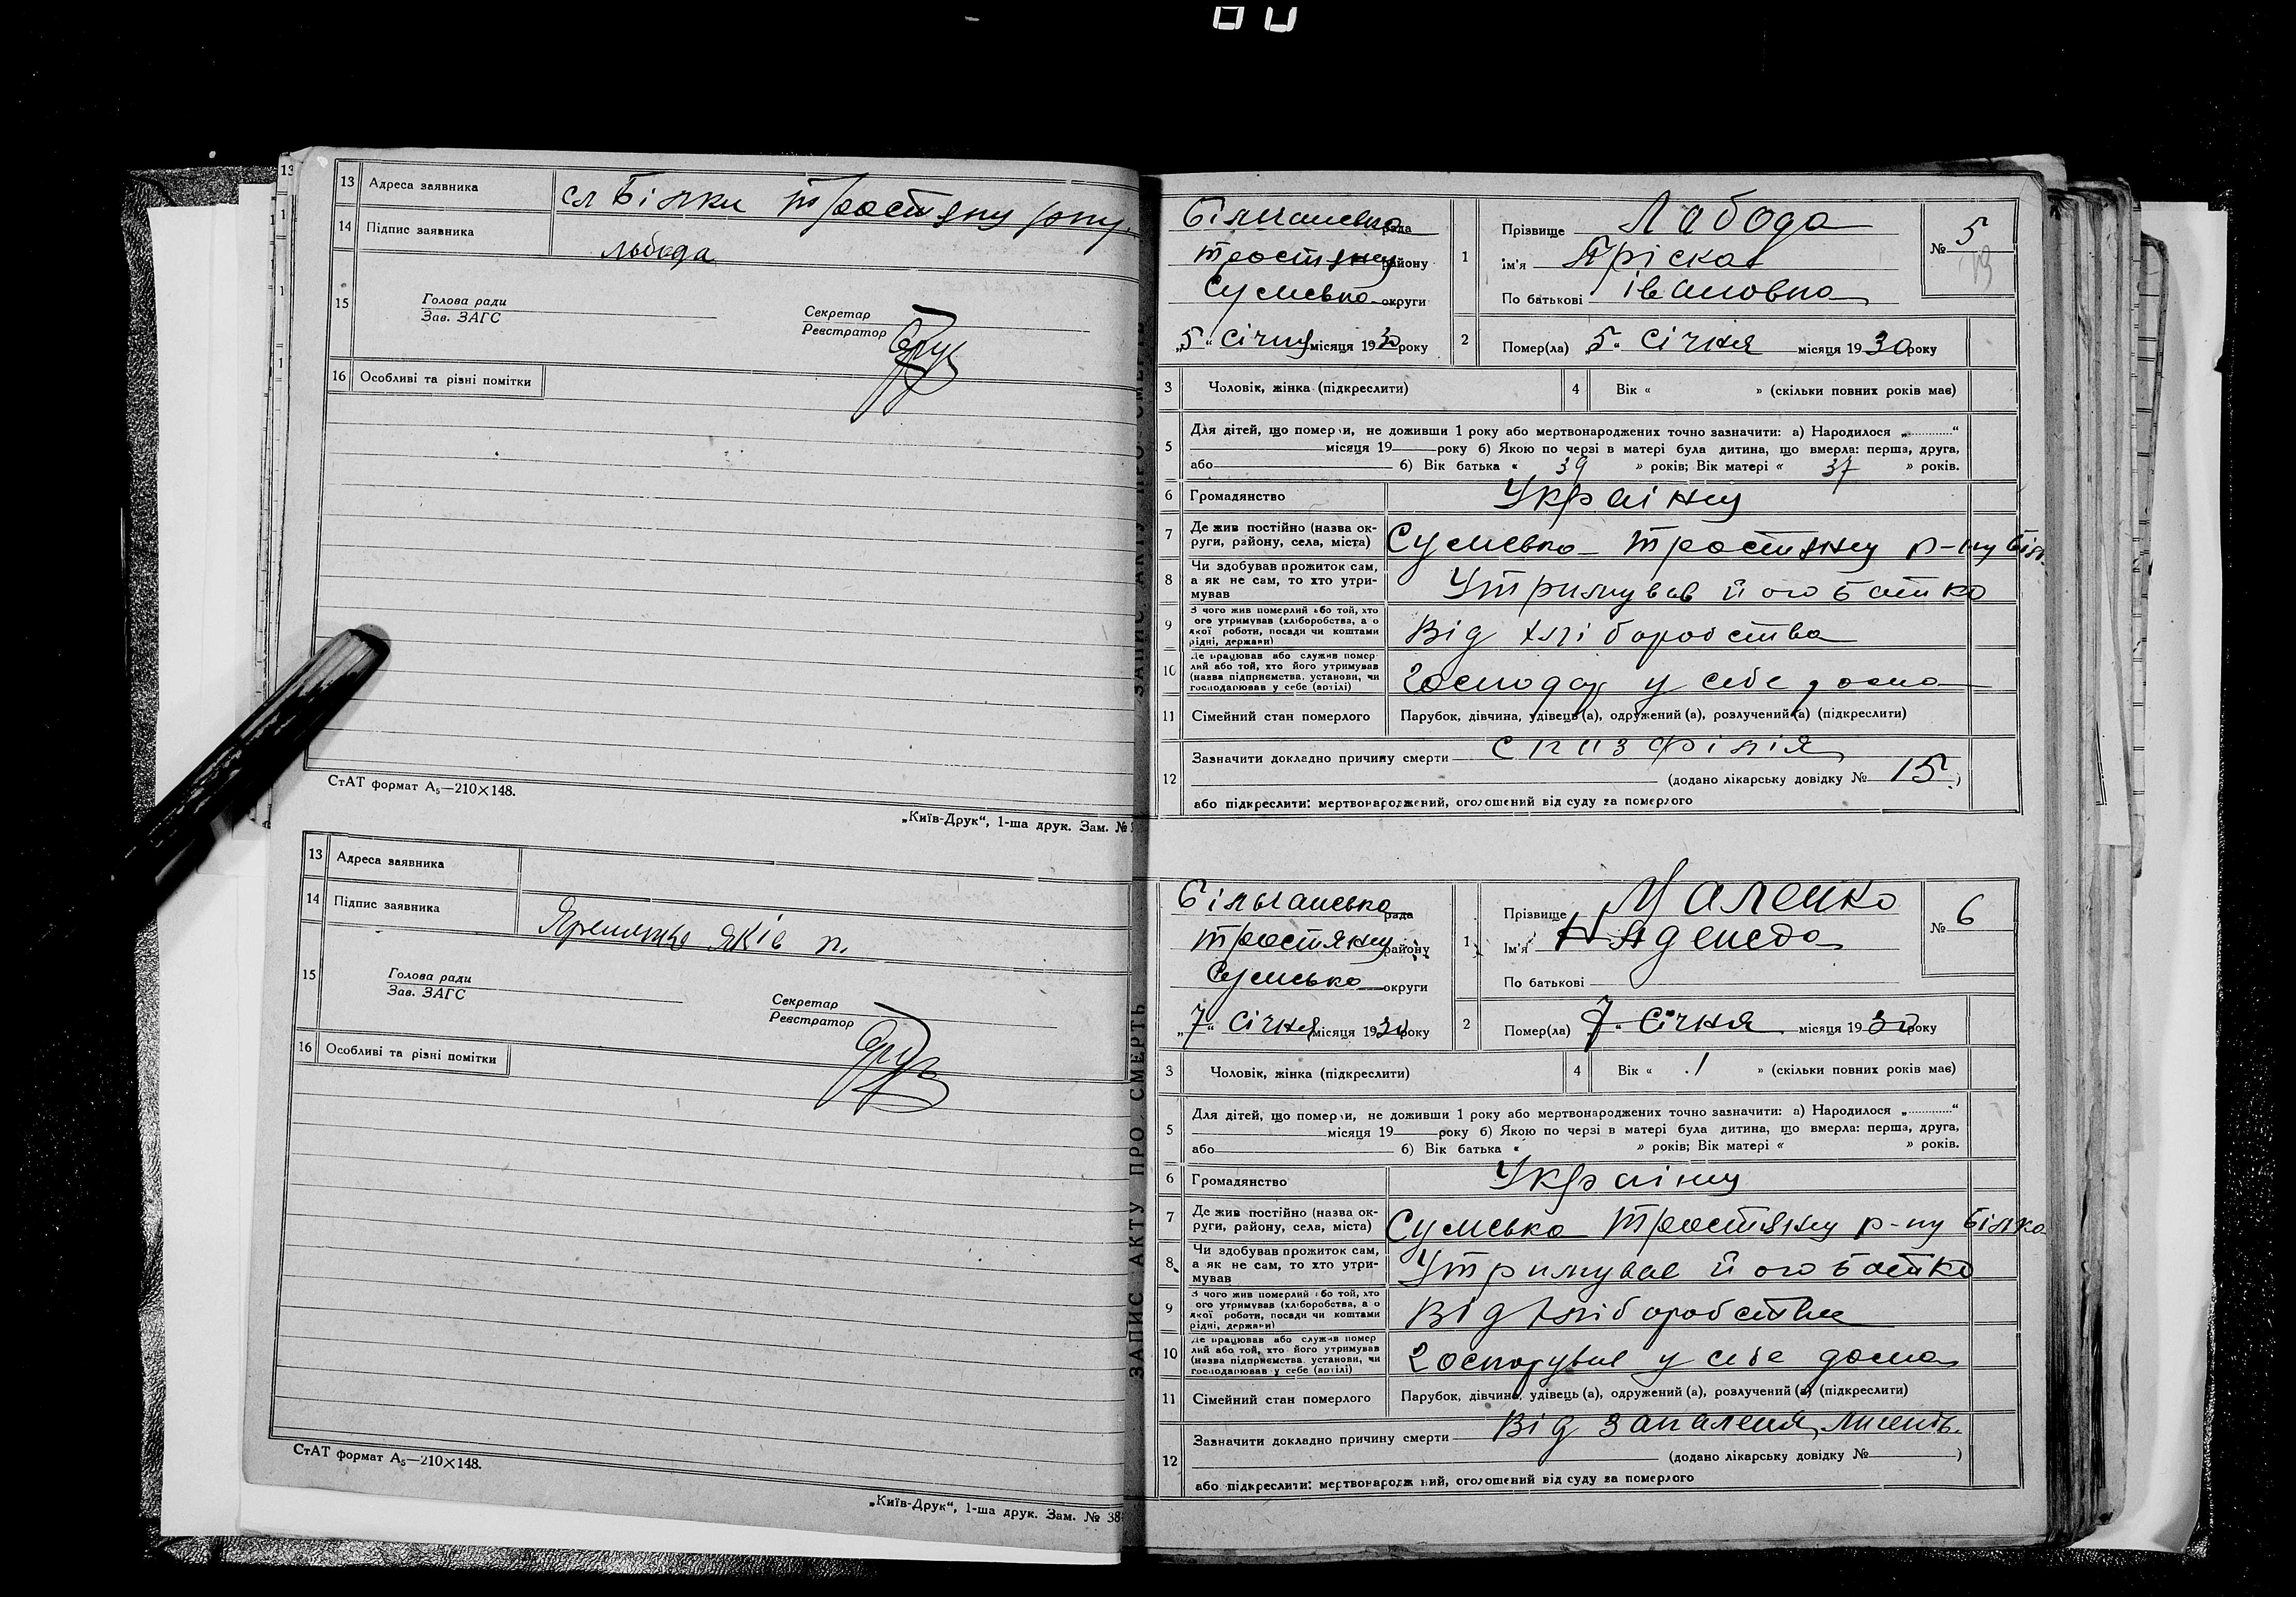 13 Адреса заявника сл Білки Тростяну рну.
14 Підпис заявника Лобода
15 Голова ради
Зав. ЗАГС
Секретар
Реєстратор
16 Особливі та різні помітки
СтАТ формат А₅—210×148.
„Київ-Друк“, 1-ша друк. Зам. №
13 Адреса заявника
14 Підпис заявника Яків п.
15 Голова ради
Зав. ЗАГС
Секретар
Реєстратор
16 Особливі та різні помітки
СтАТ формат А₅—210×148.
„Київ-Друк“, 1-ша друк. Зам. № 38
ЗАПИС АКТУ ПРО СМЕРТЬ
ЗАПИС АКТУ ПРО СМЕРТЬ
рада
Тростяну району
Сумсько округи
„5“ Січня місяця 1930 року
1 Прізвище Лобода
ім'я Пріска
По батькові івановна
№ 5
13
2 Помер(ла) 5“ Січня місяця 1930 року
3 Чоловік, жінка (підкреслити)
4 Вік « » (скільки повних років має)
5 Для дітей, що померли, не доживши 1 року або мертвонароджених точно зазначити: а) Народилося „ “
місяця 19 року б) Якою по черзі в матері була дитина, що вмерла: перша, друга,
або б) Вік батька « 39 » років; Вік матері « 37 » років.
6 Громадянство Україну
7 Де жив постійно (назва округи, району, села, міста) Сумсько Тростяну р-ну Біл
8 Чи здобував прожиток сам, а як не сам, то хто утримував Утримував його батько
9 З чого жив померлий або той, хто його утримував (хліборобства, а о якої роботи, посади чи коштами рідні, держави) Від хліборобства
10 Де працював або служив помер лий або той, хто його утримував (назва підприємства, установи, чи господарював у себе (артілі) Господар у себе дома
11 Сімейний стан померлого Парубок, дівчина, удівець (а), одружений (а), розлучений (а) (підкреслити)
12 Зазначити докладно причину смерти спазфілія
(додано лікарську довідку № 15)
або підкреслити: мертвонароджений, оголошений від суду за померлого
рада
Тростяну району
Сумсько округи
„7“ Січня місяця 1930 року
1 Прізвище
Ім'я
По батькові
№ 6
2 Помер(ла) 7“ Січня місяця 1930 року
3 Чоловік, жінка (підкреслити)
4 Вік « 1 » (скільки повних років має)
5 Для дітей, що померли, не доживши 1 року або мертвонароджених точно зазначити: а) Народилося „ “
місяця 19 року б) Якою по черзі в матері була дитина, що вмерла: перша, друга,
або б) Вік батька « » років; Вік матері « » років.
6 Громадянство Україну
7 Де жив постійно (назва округи, району, села, міста) Сумсько Тростяну р-ну Білка
8 Чи здобував прожиток сам, а як не сам, то хто утримував Утримував його батько
9 З чого жив померлий або той, хто його утримував (хліборобства, а о якої роботи, посади чи коштами рідні, держави) Від хліборобства
10 Де працював або служив помер лий або той, хто його утримував (назва підприємства, установи, чи господарював у себе (артілі) у себе дома
11 Сімейний стан померлого Парубок, дівчина, удівець (а), одружений (а), розлучений (а) (підкреслити)
12 Зазначити докладно причину смерти Від запаленя
(додано лікарську довідку № )
або підкреслити: мертвонароджений, оголошений від суду за померлого